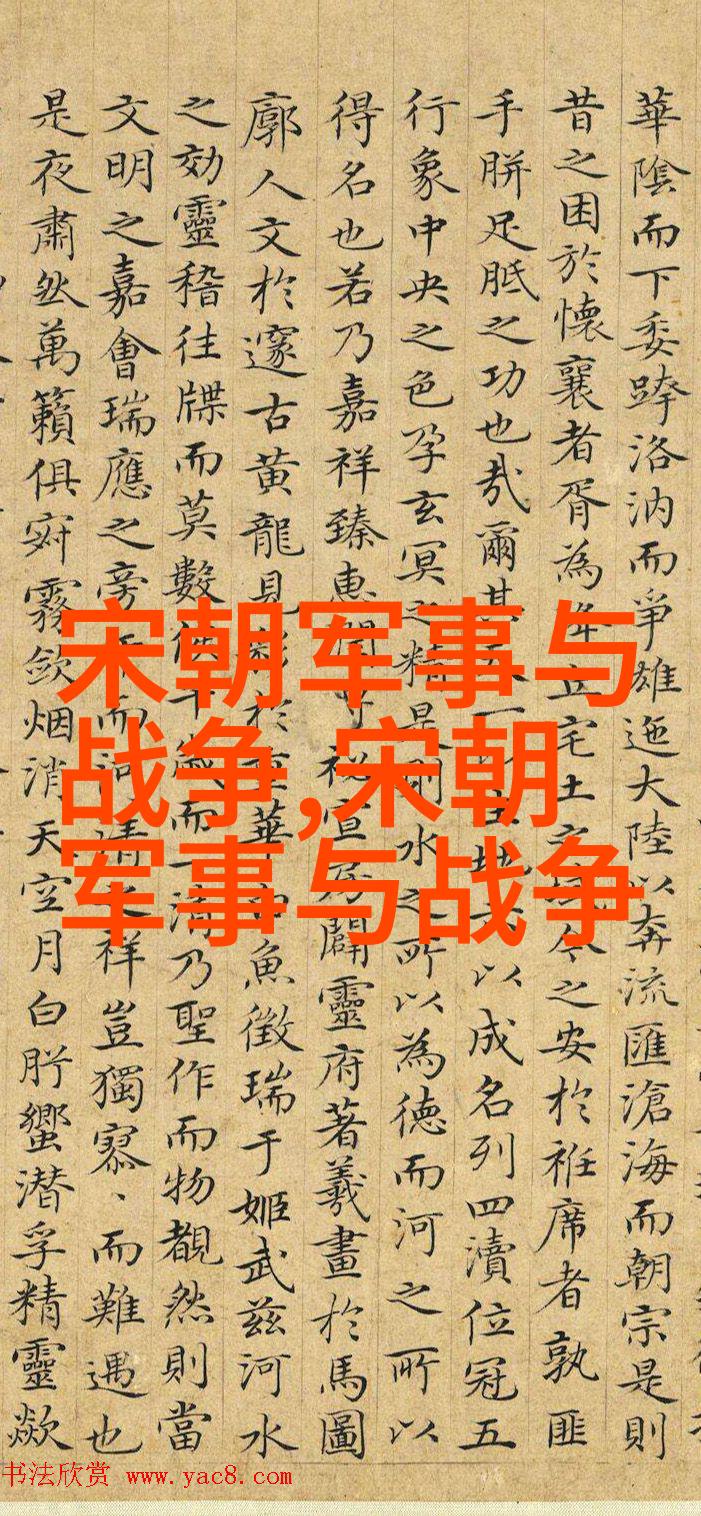 華陰而下委洛汭而爭雄迤大陸以奔流匯滄海而朝宗是則
昔之困於懷襄者胥為宅土之今之安於袵席者孰匪
手胼足胝之功也哉爾其一以成名列四瀆位冠五
行象中央之色孕玄冥之精是水之所以為德而河之所以
得名也若乃嘉祥臻惠祕宣乃闢靈府著羲畫於馬圖
廓人文於邃古黃龍見於華魚徵瑞于姬武茲河水
之効靈稽往牒而莫數千歲而一清乃聖作而物覩然則當
文明之嘉會瑞應之旁而河清之祥豈獨寡、而難遇也
是夜肅然萬籟俱寂霧歛烟消天空月白肸蠁潛孚精靈歘
宋朝军事与
战争,宋朝
军事与战争
书法欣赏 www.yac8.com